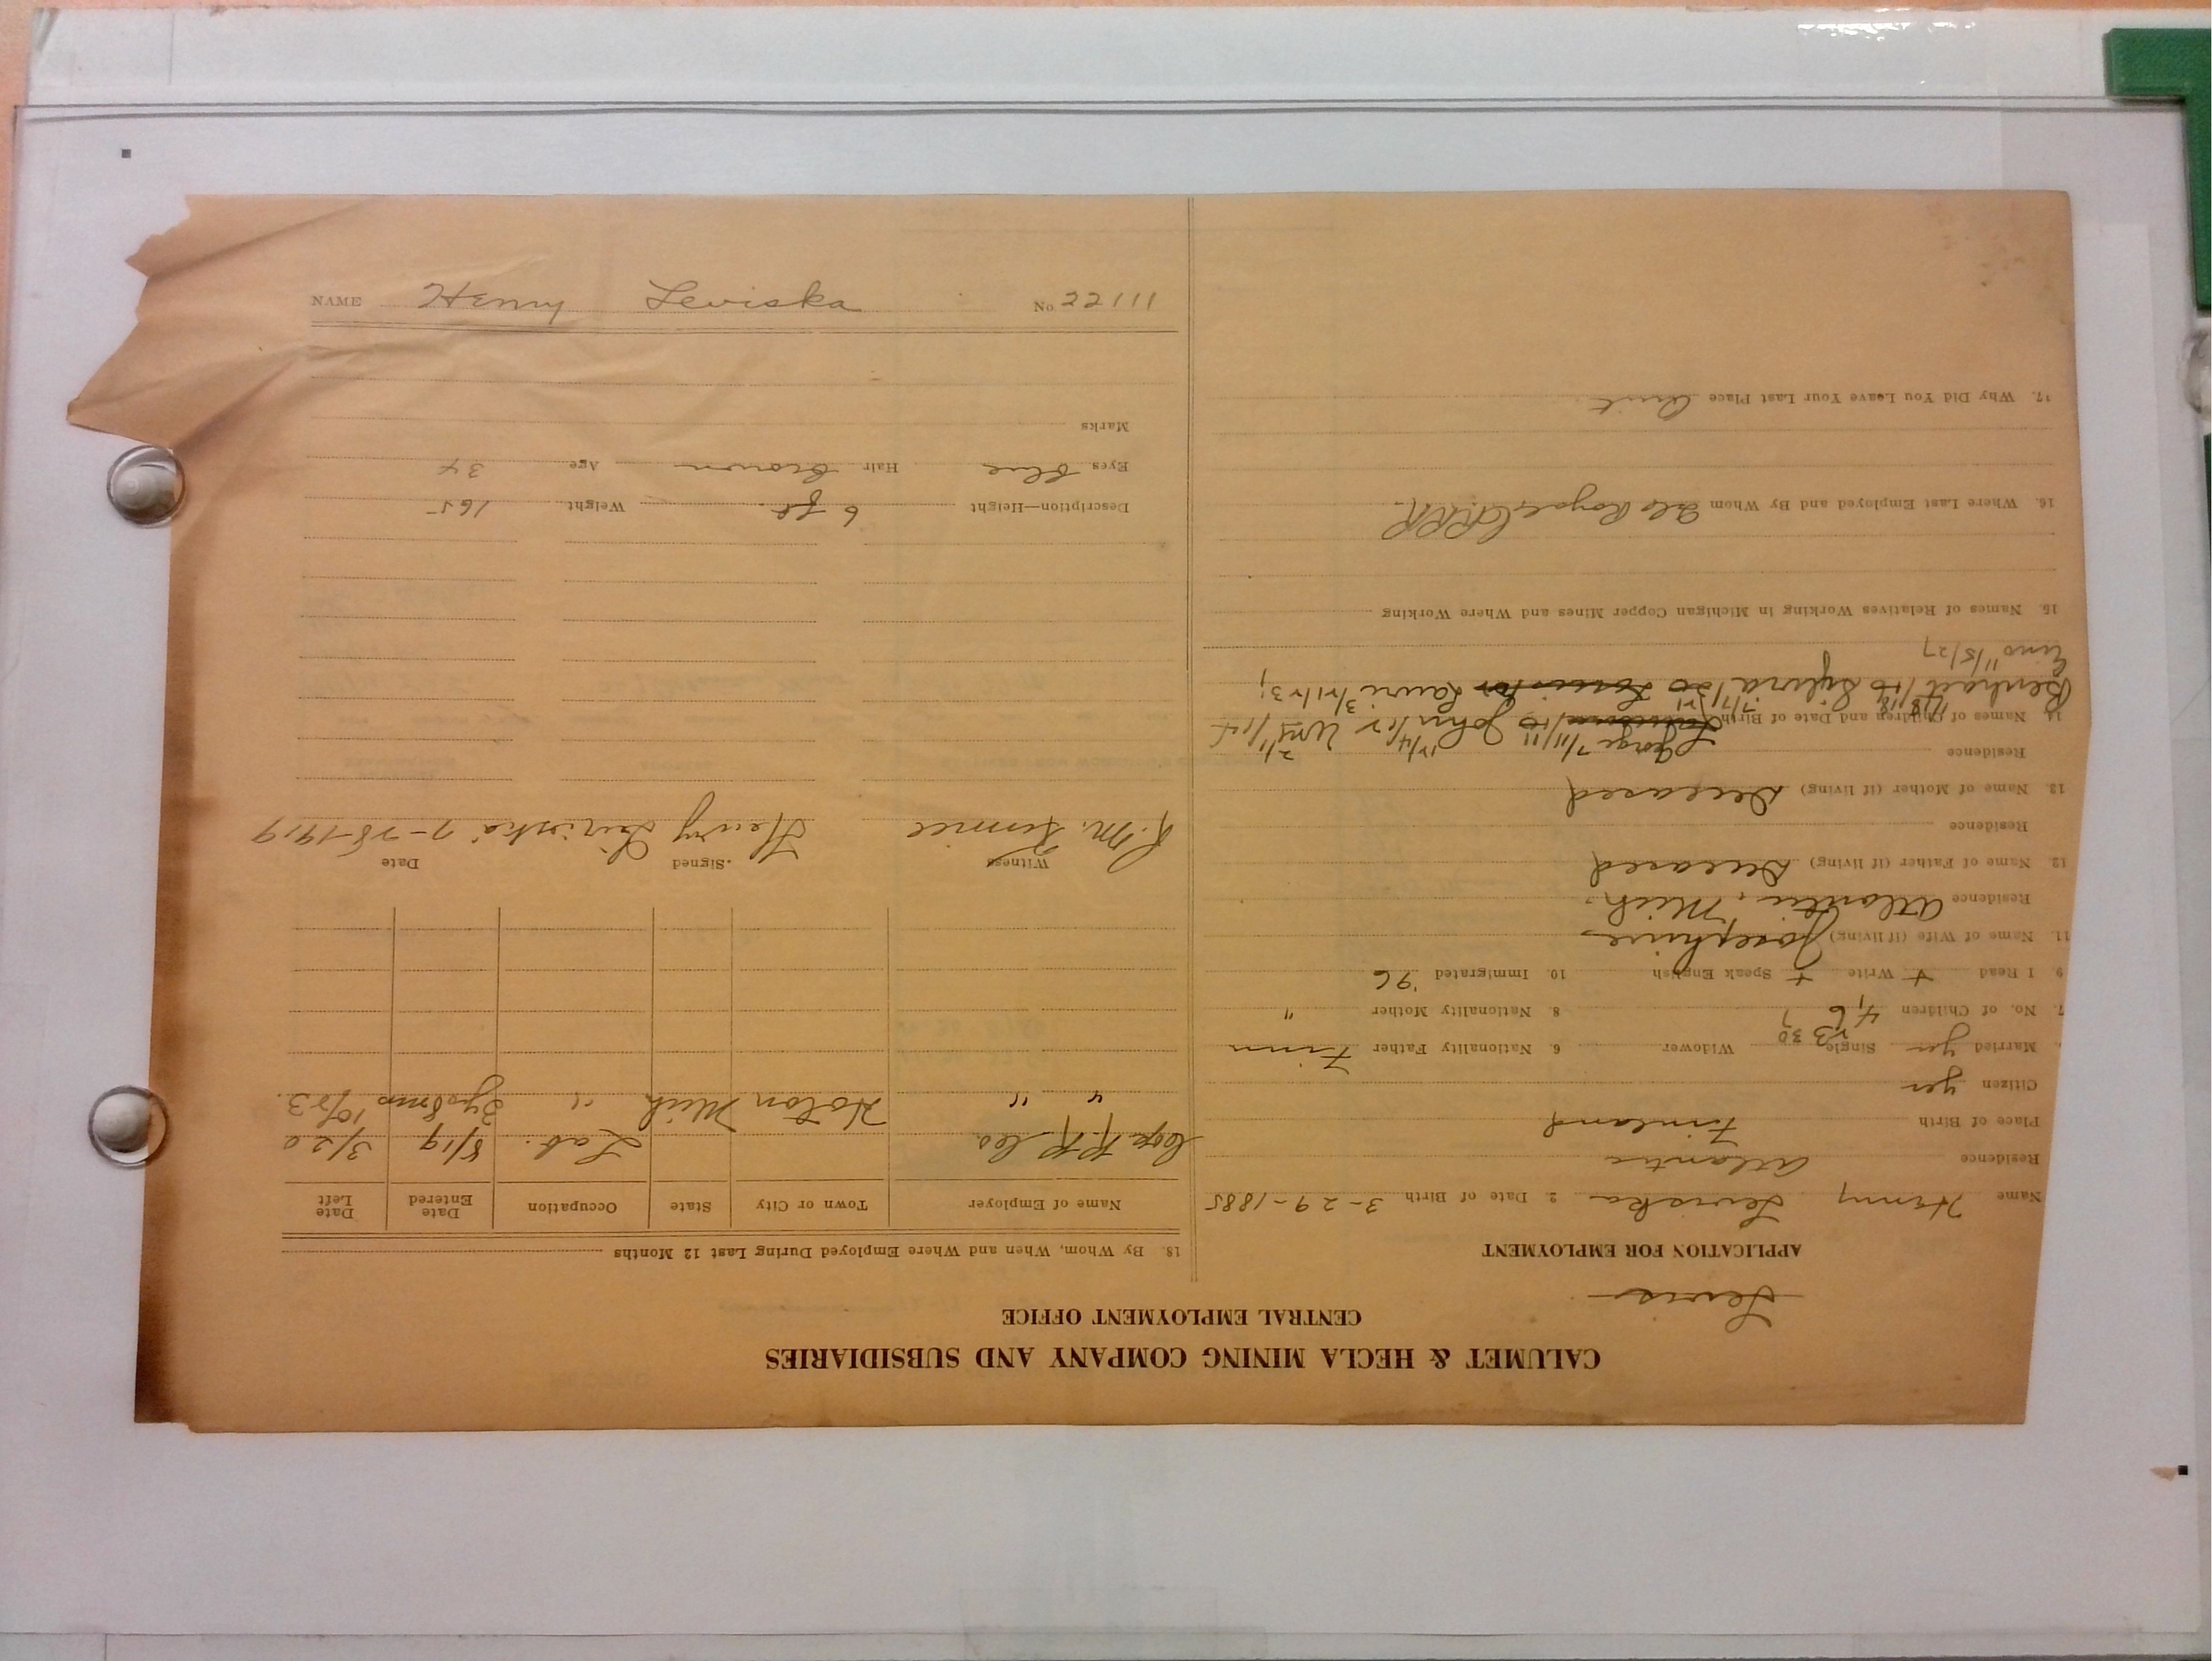 CALUMET & HECLA MINING COMPANY AND SUBSIDIARIES
CENTRAL EMPLOYMENT OFFICE
Levis
APPLICATION FOR EMPLOYMENT
Name Henry Leviska 2. Date of Birth 3-29-1885
Residence Atlantic
Place of Birth Finland
Citizen yes
Married yes Single Widower 6. Nationality Father Finn
7. No. of Children 4, 6 7 8. Nationality Mother "
9. I Read + Write + Speak English 10. Immigrated '96
11. Name of Wife (if living) Josephine
Residence Atlantic, Mich.
12. Name of Father (if living) Deceased
Residence
13. Name of Mother (if living) Deceased
Residence
14. Names of Children and Date of Birth George 7/11/11 John Uno
Benhart Sylvia Lauri
Eino 11/5/27
15. Names of Relatives Working in Michigan Copper Mines and Where Working
16. Where Last Employed and By Whom Isle Royale CRRR
17. Why Did You Leave Your Last Place Quit
18. By Whom, When and Where Employed During Last 12 Months
Name of Employer Town or City State Occupation Date Entered Date Left
Cop R.R. Co. Lab. 8/19 3/20
" " Hoton Mich " 3yrs 8mos 10/23.
Witness Signed Date
Henry Leviska 7-28-1919
Description—Height 6 ft. Weight 165
Eyes Blue Hair Brown Age 34
Marks
NAME Henry Leviska No 22111